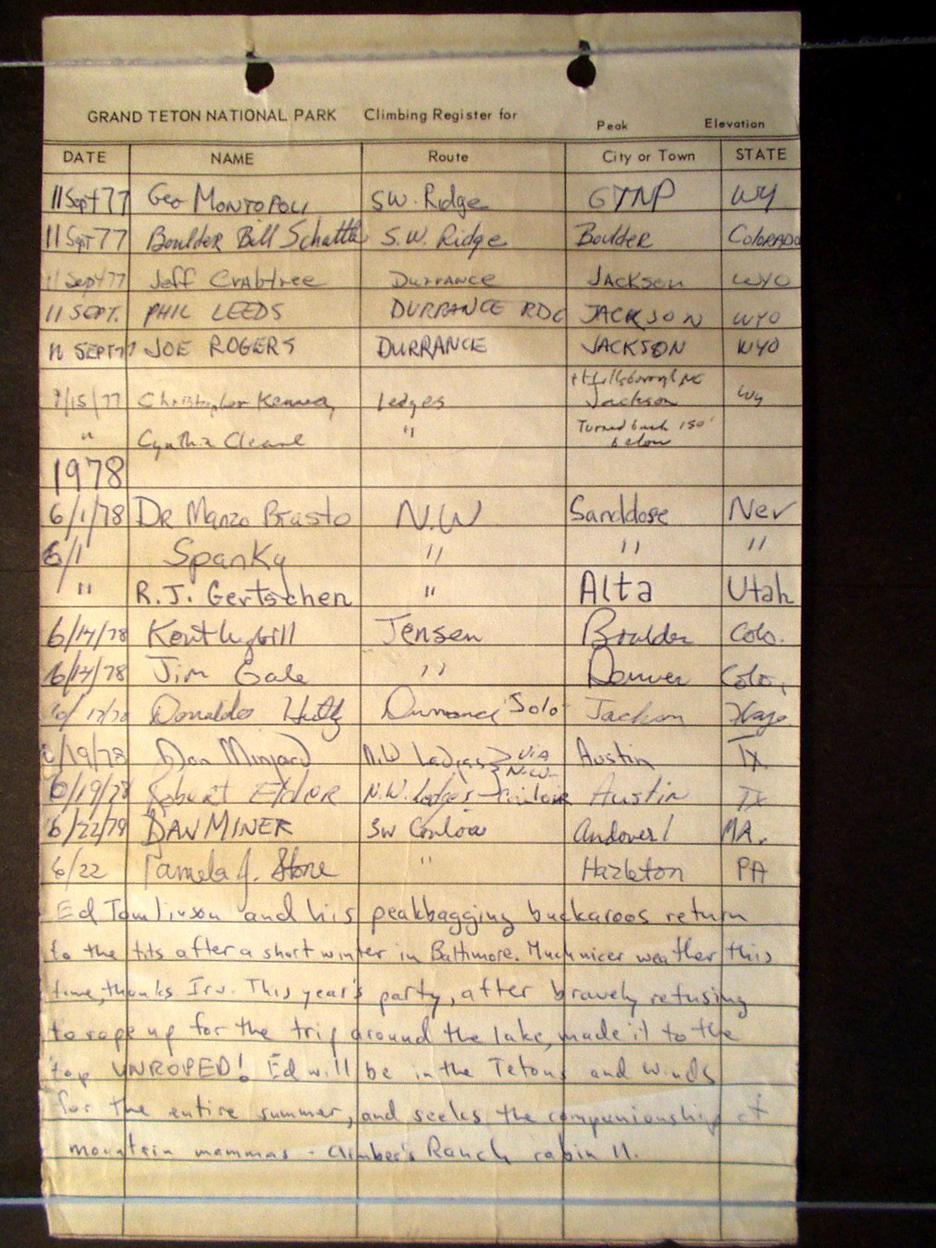 GRAND TETON NATIONAL PARK Climbing Register for Peak Elevation
DATE NAME Route City or Town STATE
11 Sept 77 Geo MONTOPOLI SW. Ridge GTNP WY.
11 Sept 77 Boulder Bill S.W. Ridge Boulder COLORADO
11 Sept 77 Jeff Crabtree DURRANCE JACKSON WYO
11 SEPT. PHIL LEEDS DURRANCE RDG JACKSON WYO
SEPT 77 JOE ROGERS DURRANCE JACKSON WYO
Hillsborough NC
9/15/77 Christopher Ledges Jackson Wy
" Cynthia " Turned back 150'
below
1978
6/1/78 DR Manzo Brasto N.W Nev
6/1 Spanky " " "
" R.J. Gertschen " Alta Utah
6/14/78 Jensen Boulder Colo.
6/14/78 Jim Gale " Denver Colo.
Donaldo Solo Jackson
6/19/78 Don N.W Ledges via Austin TX.
N.W.
6/19/78 Robert N.W. Ledges Austin TX
6/22/79 DAN MINER SW Andover MA.
6/22 Pamela J. Stone " Hazleton PA
Ed Tomlinson and his peakbagging buckaroos return
to the tits after a short winter in Baltimore. Much nicer weather this
time, thanks Irv. This year's party, after bravely refusing
to rope up for the trip around the lake, made it to the
top UNROPED! Ed will be in the Tetons and Winds
for the entire summer, and seeks the companionship of
mountain mammas - Climber's Ranch cabin 11.